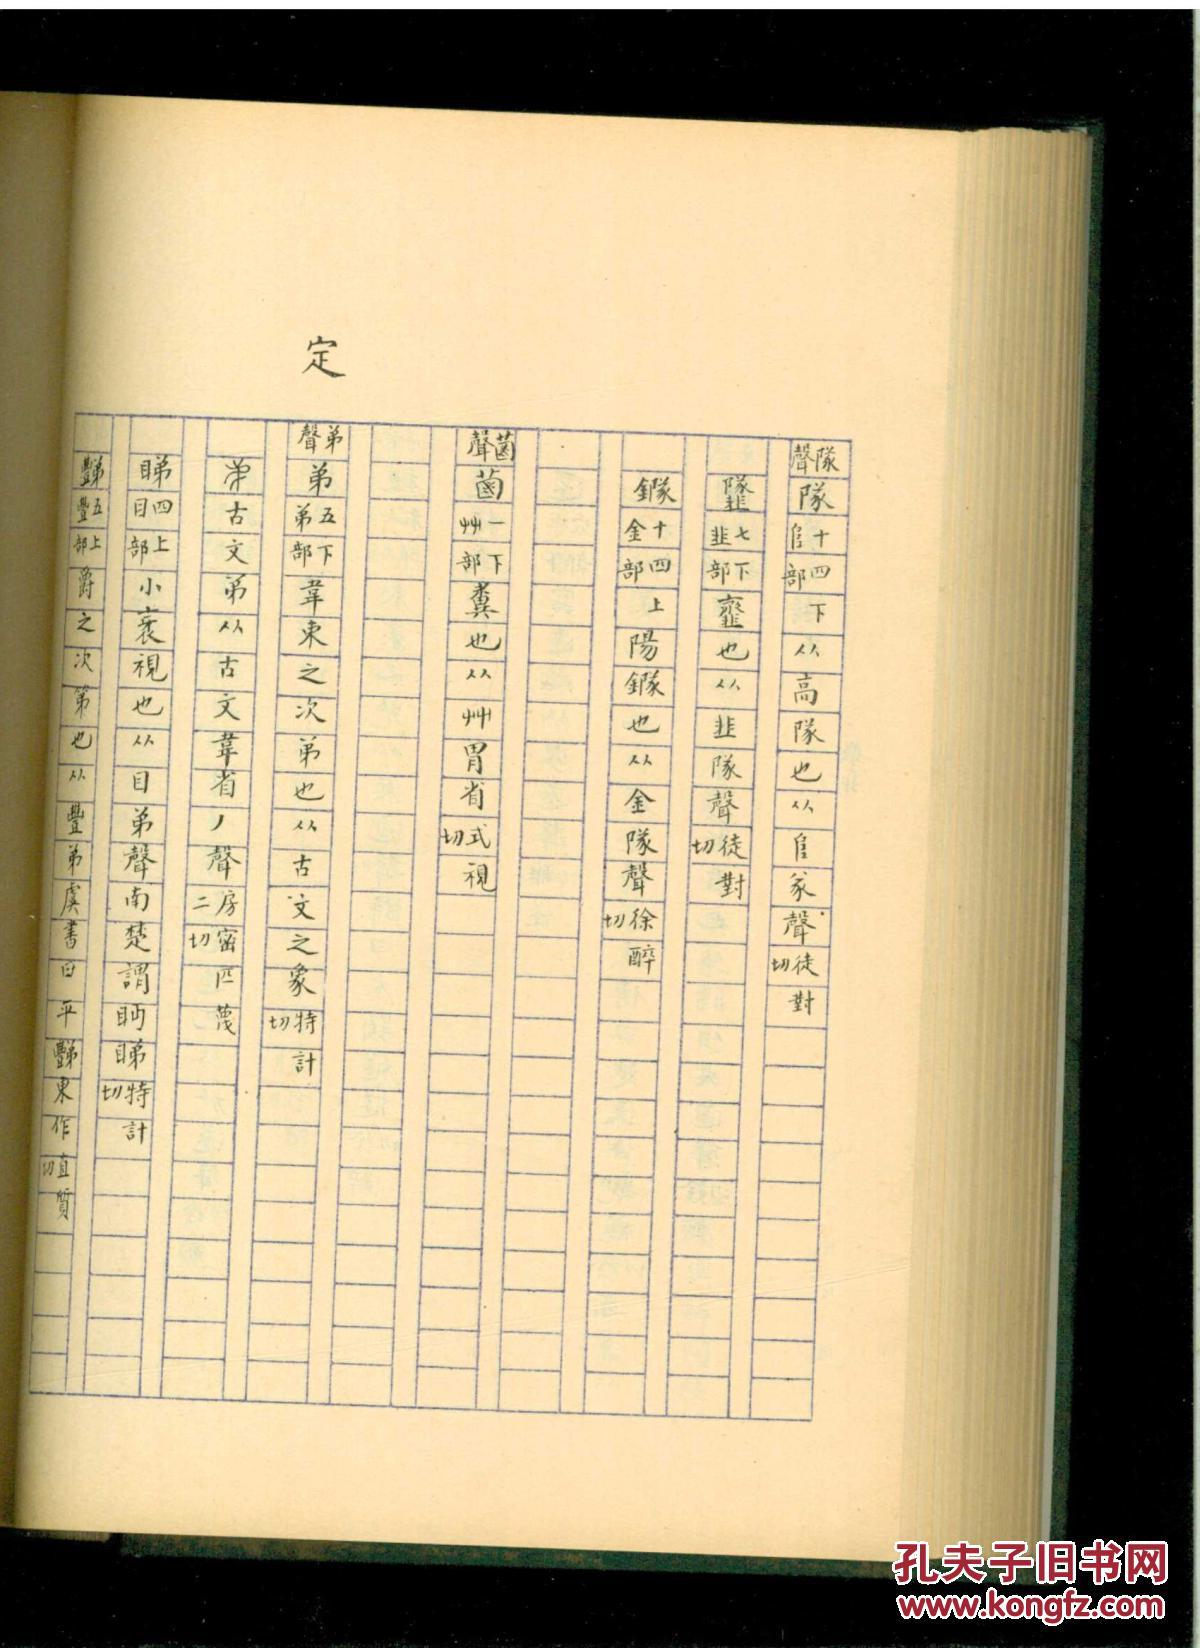 定
隊聲 隊 十四下𨸏部 从高隊也从𨸏㒸聲 徒對切
䪤 七下韭部 𩐋也从韭隊聲 徒對切
鐆 十四上金部 陽鐆也从金隊聲 徐醉切
𦳊聲 𦳊 一下艸部 糞也从艸胃省 式視切
弟聲 弟 五下弟部 韋束之次弟也从古文之象 特計切
古文弟从古文韋省丿聲 房密匹蔑二切
睇 四上目部 小衺視也从目弟聲南楚謂眄睇 特計切
豑 五上豐部 爵之次第也从豐弟虞書曰平豑東作 直質切
孔夫子旧书网
www.kongfz.com